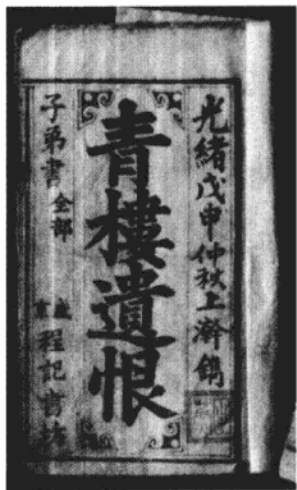 光緒戊申仲秋上澣鐫
青樓遺恨
子弟書全部
盛京程記書坊